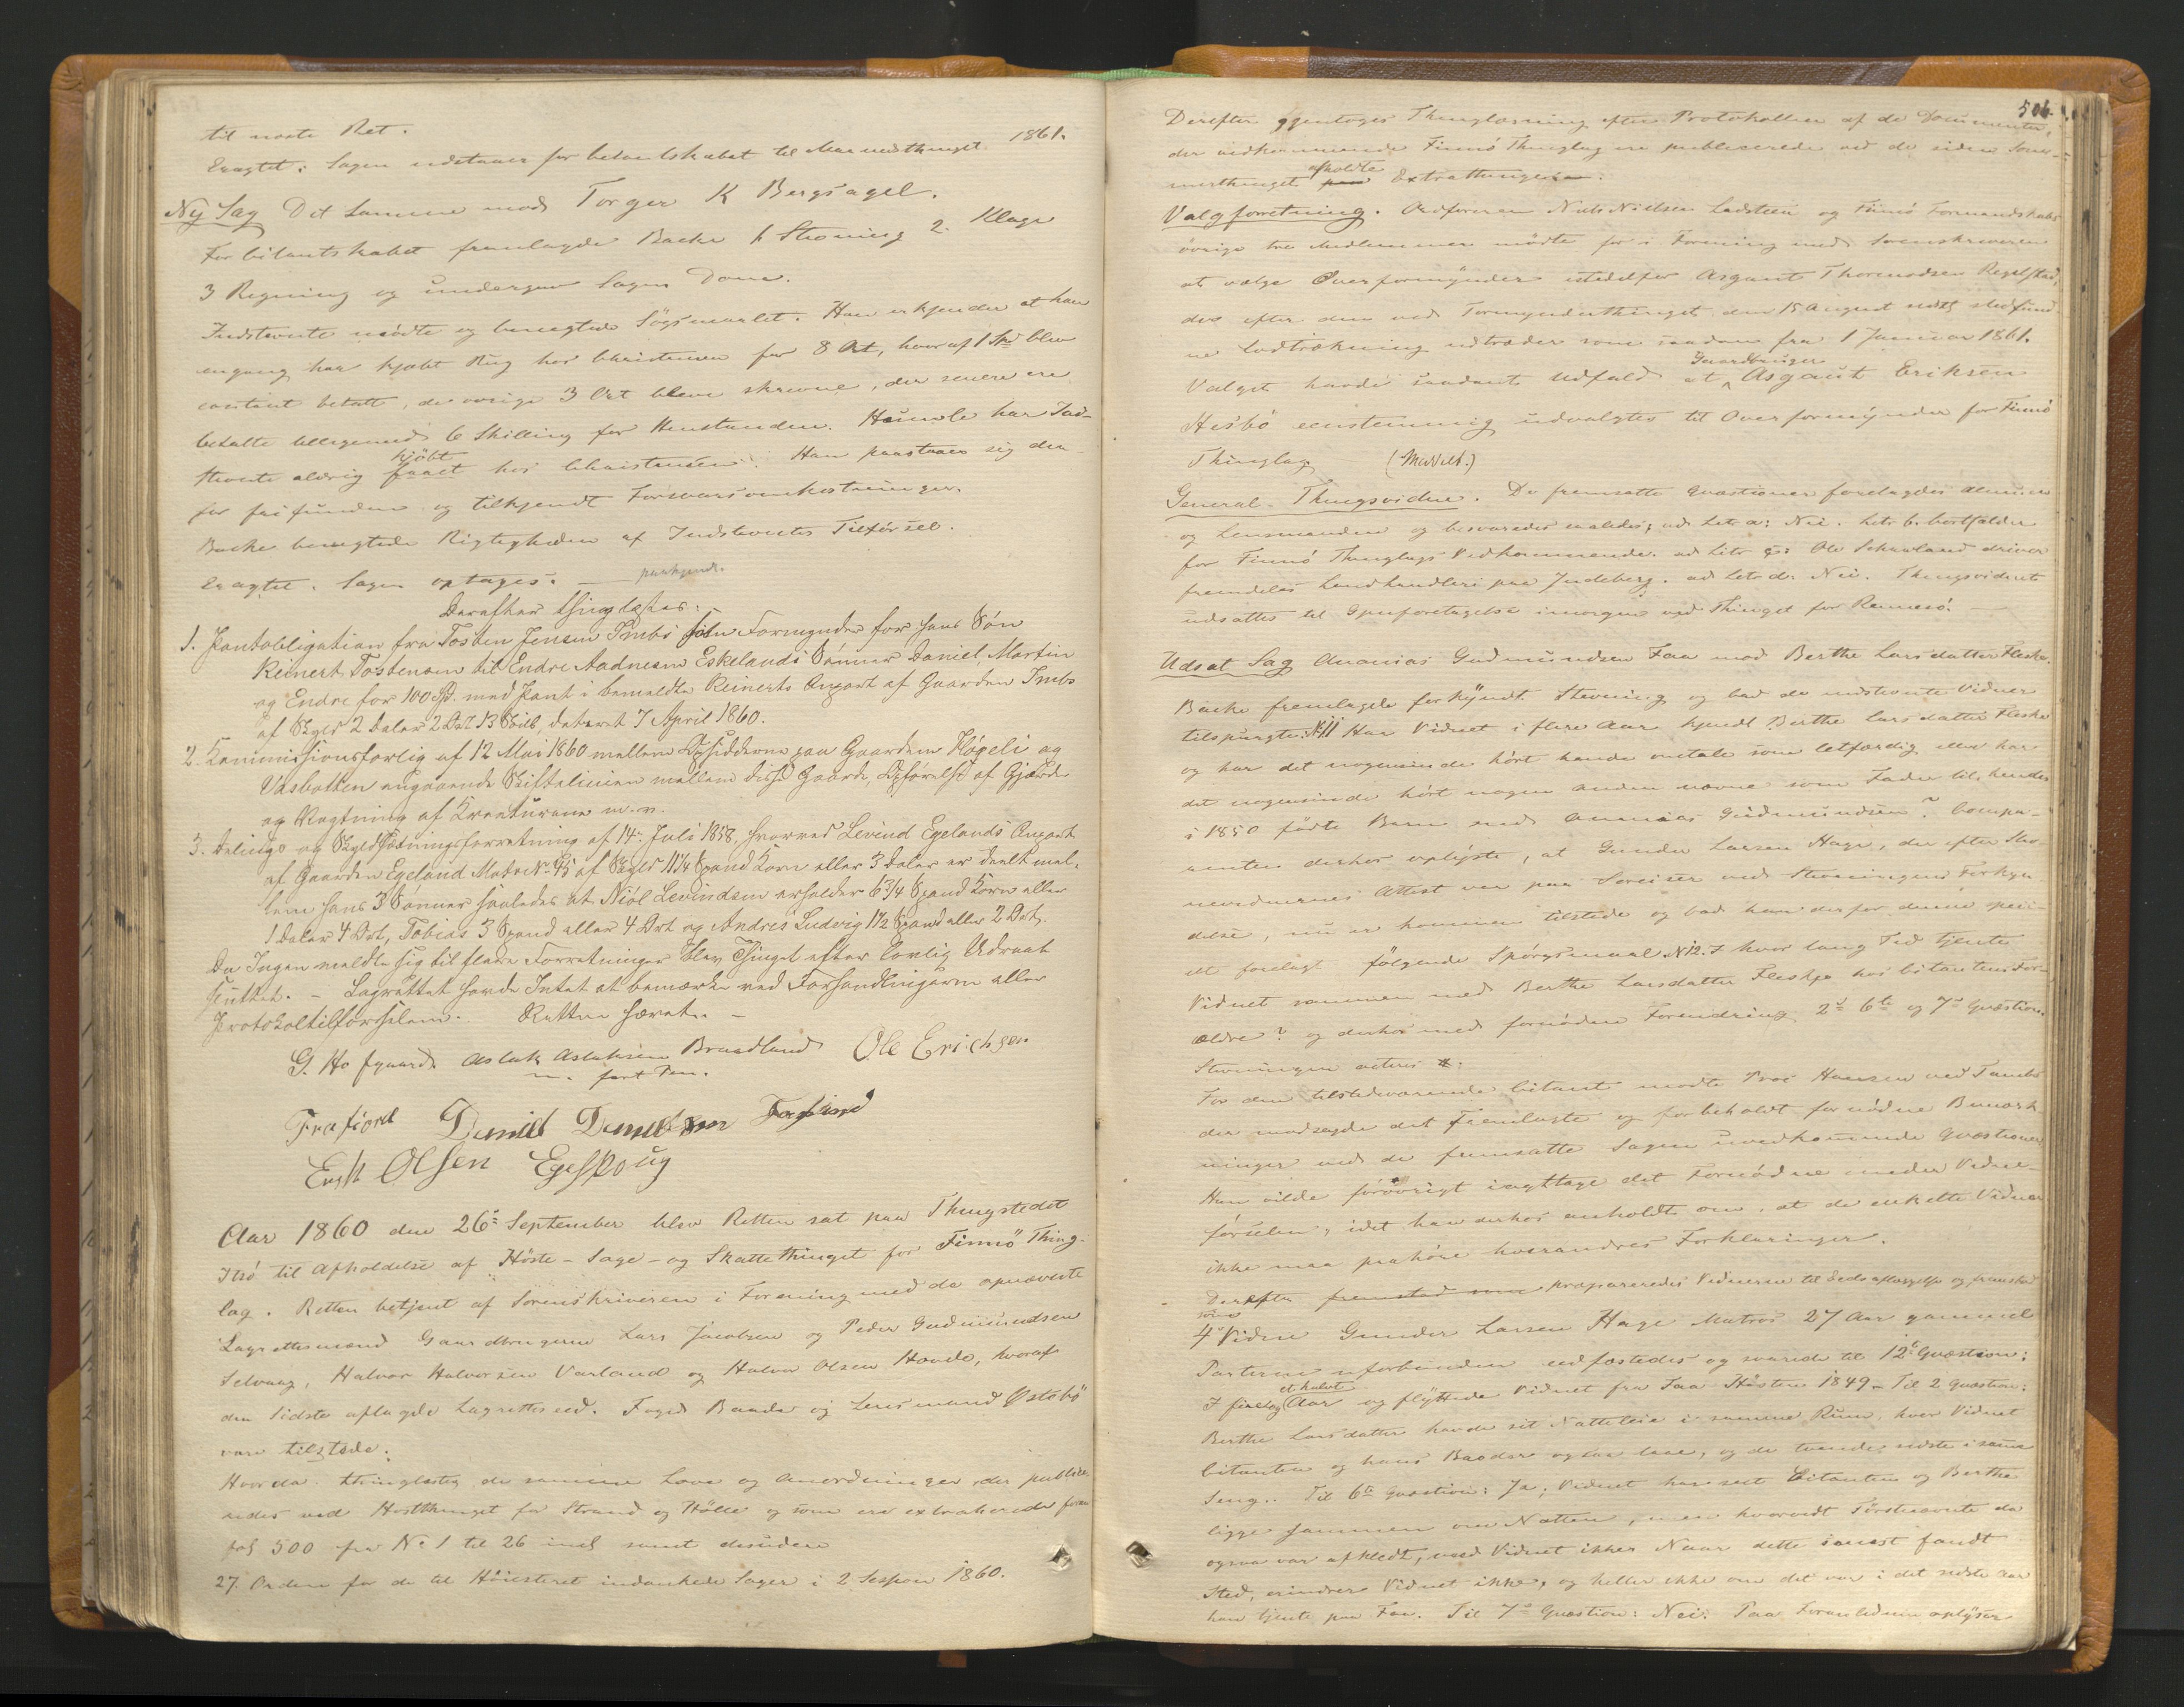 til næste Ret.
Eragtet: Sagen udstaaer for bekantskabet til Marmedthinget 1861.
Ny Sag Det samme mod Torger K Bergsagel.
For Citantskabet fremlagde Backe 1 Stævning 2. Klage
3 Regning og undergav Sagen Dom.
Indstevnte mødte og benegtede Søgsmaalet. Han erkjender at han
engang har kjøbt Rug hos Christensen for 8 Ort, hvoraf 1 Spd blev
contant betalt, de øvrige 3 Ort bleve skrevne, der senere ere
betalte tilligemed 6 Skilling for Henstanden. Humle har Ind-
stevnte aldrig faaet kjöbt hos Christensen. Han paastaaer sig der-
for frifunden og tilkjendt Forsvarsomkostninger.
Backe benegtede Rigtigheden af Indstevntes Tilførsel.
Eragtet. Sagen optages. — paakjend.
Derefter thinglæstes:
1. Pantobligation fra Tosten Jensen Imbs som Formynder for hans Søn
Reinert Tostensen til Endre Aadnesen Eskelands Sønner Daniel, Martin
og Endre for 100 Spd. med Pant i bemeldte Reinerts Anpart af Gaarden Imbs
af Skyld 2 Daler 2 Ort 13 Skill, dateret 7 April 1860.
2. Kommissionsforlig af 12 Mai 1860 mellem Opsidderne paa Gaardene Høgeli og
Vasbotten angaaende Skiftelinien mellem disse Gaarde, Opførelse af Gjærder
og Vogtning af Kreaturene m. v.
3. Delings og Skyldsætningsforretning af 14 Juli 1858, hvorved Levind Egelands Anpart
af Gaarden Egeland Matr No 45 af Skyld 11 1/4 Spand Korn eller 3 Daler er deelt mel-
lem hans 3 Sønner saaledes at Niöl Levindsen erholder 6 3/4 Spand Korn eller
1 Daler 4 Ort, Tobias 3 Spand eller 4 Ort og Andreas Ludvig 1 1/2 Spand eller 2 Ort.
Da Ingen meldte sig til flere Forretninger blev Thinget efter lovlig Udraab
sluttet. – Lagrettet havde Intet at bemærke ved Forhandlingerne eller
Protokoltilførselen. Retten hævet. –
G. Hofgaard Aslak Aslaksen Braadland Ole Erichsen
m. ført Pen.
Frafjord Daniel Danielsen Forsand
Erik Olsen Egeskoug
Aar 1860 den 26de September blev Retten sat paa Thingstedet
Itsö til Afholdelse af Höste- Sage- og Skattethinget for Finnö Thing-
lag. Retten betjent af Sorenskriveren i Forening med de opnævnte
Lagrettesmænd Gaardbrugerne Lars Jacobsen og Peder Gudmundsen
Selvaag, Halvor Halvorsen Varland og Halvor Olsen Hovde, hvoraf
den sidste aflagde Lagretteseed. Foged Baade og Lensmand Østebö
vare tilstede.
Hvorda thinglæstes de samme Love og Anordninger, der publice-
redes ved Høstthinget for Strand og Hölle og som ere extraherede foran
fol 500 fra No 1 til 26 incl samt desuden
27. Orden for de til Höiesteret indankede Sager i 2 Session 1860.
506.
Derefter gjentoges Thinglæsning efter Protokollen af de Documenter,
der vedkommende Finnö Thinglag ere publicerede ved de siden Som-
merthinget afholdte Extrathinge.
Valgforretning. Ordføreren Niels Nielsen Ladsteen og Finnö Formandskabs
øvrige tre Medlemmer mödte for i Forening med Sorenskriveren
at vælge Overformynder istedetfor Asgaut Thormodsen Regelstad,
der efter den ved Formynderthinget den 15 August sidstl stedfund-
ne Lodtrækning udtræder som saadan fra 1 Januar 1861.
Valget havde saadant Udfald at Gaardbruger Asgaut Eriksen
Hesbö eenstemmig udvalgtes til Overformynder for Finnö
Thinglag (Meddelt.)
General-Thingsvidne. De fremsatte Qvæstioner forelagdes Almuen
og Lensmanden og besvaredes saaledes; ad Litr a: Nei. Litr b. bortfalder
for Finnö Thinglags Vedkommende. ad Litr c: Ole Schauland driver
fremdeles Landhandleri paa Judeberg. ad Litr d: Nei. Thingsvidnet
udsattes til Gjenforetagelse imorgen ved Thinget for Rennesö. —
Udsat Sag Ananias Gudmundsen Faa mod Berthe Larsdatter Fleske.
Backe fremlagde forkyndt Stevning og bad de indstevnte Vidner
tilspurgte: No 11 Har Vidnet i flere Aar kjendt Berthe Larsdatter Fleske
og har det nogensinde hört hende omtale som letfærdig eller har
det nogensinde hört nogen anden nævne som Fader til hendes
i 1850 födte Barn end Ananias Gudmundsen? Compa-
renten derhos oplyste, at Gunder Larsen Hage, der efter Stev-
nevidnernes Attest var paa Søreiser ved Stevningens Forkyn-
delse, nu er kommen tilstede og bad han derfor denne speci-
elt forelagt følgende Spørgsmaal No 12. I hvor lang Tid tjente
Vidnet sammen med Berthe Larsdatter Fleskje hos Citantens For-
ældre? og derhos med fornöden Forandring 2d 6te og 7de Qvæstion.
Stevningen acteres
For den tilstedeværende Citant mødte Proc Hansen ved Tambs
der modsagde det Fremlagte og forbeholdt fornödne Bemærk-
ninger ved de fremsatte Sagen uvedkommende Qvæstioner.
Han vilde forøvrigt iagttage det Fornødne under Vidne-
førselen, idet han derhos anholdt om, at de enkelte Vidner
ikke maa paahöre hverandres Forklaringer.
Derefter fremstod som præpareredes Vidnerne til Eedsaflæggelse og fremstod
som
4de Vidne Gunder Larsen Hage Matros 27 Aar gammel
Parterne uforbunden eedfæstedes og svarede til 12te Qvæstion:
I fire og et halvt Aar og flyttede Vidnet fra Faa Høsten 1849. Til 2 Qvæstion:
Berthe Larsdatter havde sit Natteleie i samme Rum, hvor Vidnet
Citanten og hans Broder ogsaa laae, og de tvende sidste i samme
Seng. Til 6te Qvæstion: Ja; Vidnet har seet Citanten og Berthe
ligge sammen om Natten, men hvorvidt Førstnævnte da
ogsaa var afklædt, veed Vidnet ikke. Naar dette senest fandt
Sted, erindrer Vidnet ikke, og heller ikke om det var i det sidste Aar
han tjente paa Faa. Til 7de Qvæstion: Nei. Paa Foranledning oplyser